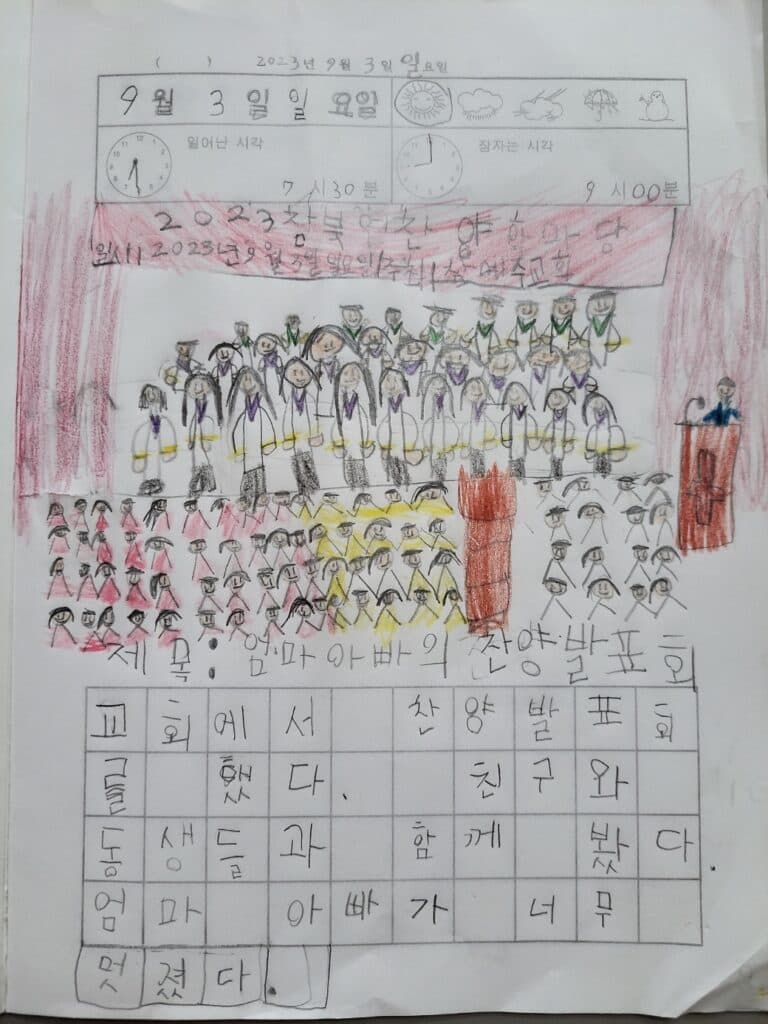 ( ) 2023년 9월 3일 일요일
9월 3일 일요일
일어난 시각 잠자는 시각
7시 30분 9시 00분
2023 참북 찬양한마당
일시 2023년 9월 3일 일요일 주교회
제목: 엄마아빠의 찬양발표회
교회에서 찬양발표회
를 했다. 친구와
동생들과 함께 봤다.
엄마 아빠가 너무
멋졌다.